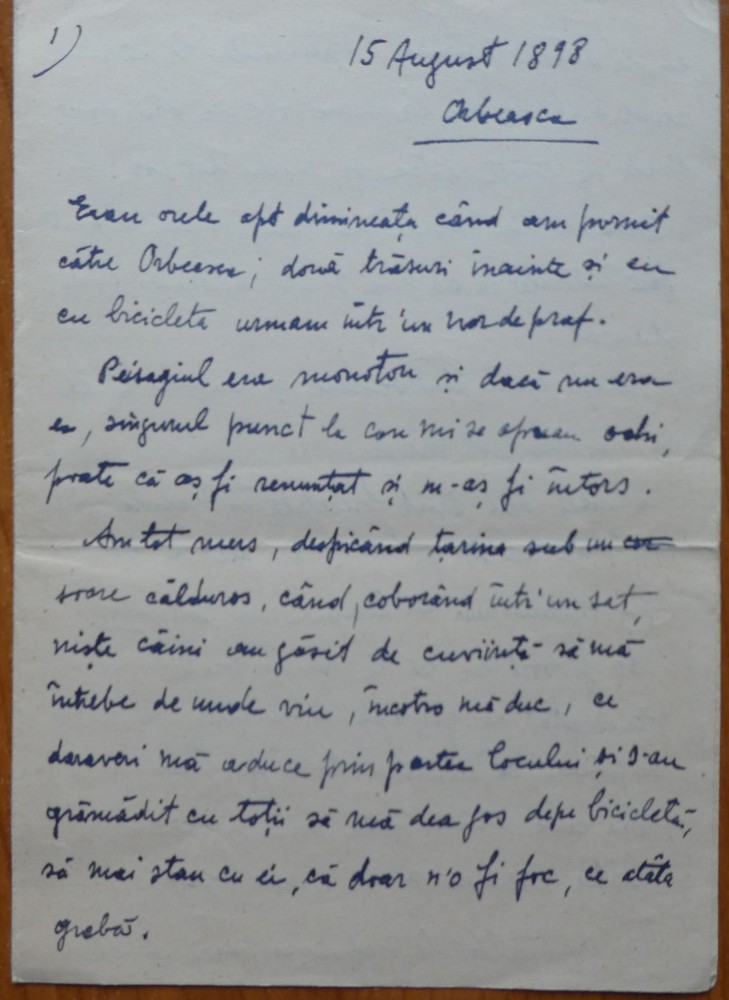 1)
15 August 1898
Orbeasca
Erau orele opt dimineața când am pornit
către Orbeasca; două trăsuri înainte și eu
cu bicicleta urmam într'un nor de praf.
Peisagiul era monoton și dacă nu era
ea, singurul punct la care mi se opreau ochi,
poate că aș fi renunțat și m-aș fi întors.
Am tot mers, despicând țarina sub un
soare călduros, când, coborând într'un sat,
niște câini au găsit de cuviință să mă
întrebe de unde viu, încotro mă duc, ce
daraveri mă aduce prin partea locului și s-au
grămădit cu toții să mă dea jos depe bicicletă,
să mai stau cu ei, că doar n'o fi foc, ce atâta
grabă.